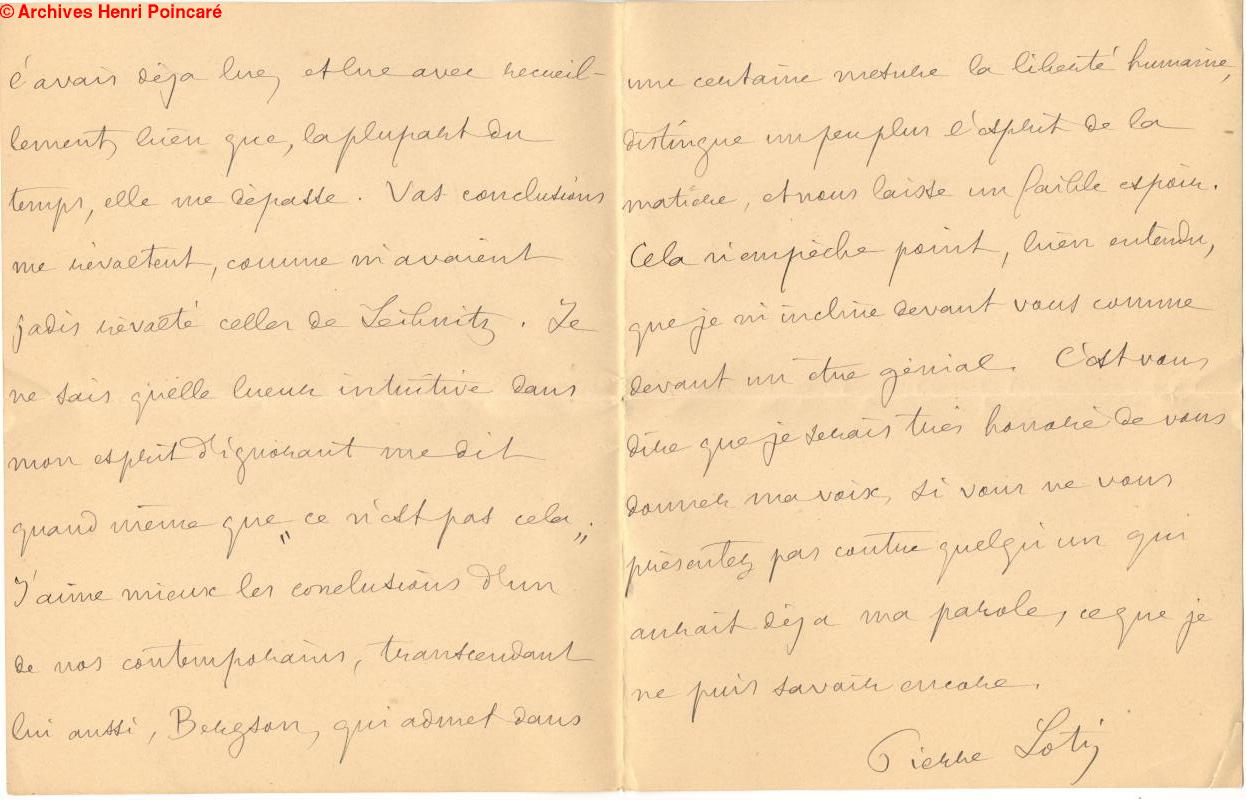 © Archives Henri Poincaré
l'avais déja lue, et lue avec recueil-
lement, bien que, la plupart du
temps, elle me dépasse. Vos conclusions
me révoltent, comme m'avaient
jadis révolté celles de Leibnitz. Je
ne sais quelle lueur intuitive dans
mon esprit d'ignorant me dit
quand même que „ce n'est pas cela„.
J'aime mieux les conclusions d'un
de nos contemporains, transcendant
lui aussi, Bergson, qui admet dans
une certaine mesure la liberté humaine,
distingue un peu plus l'esprit de la
matière, et nous laisse un faible espoir.
Cela n'empèche point, bien entendu,
que je m'incline devant vous comme
devant un être génial. C'est vous
dire que je serais très honoré de vous
donner ma voix, si vous ne vous
présentez pas contre quelqu'un qui
aurait déja ma parole, ce que je
ne puis savoir encore.
Pierre Loti